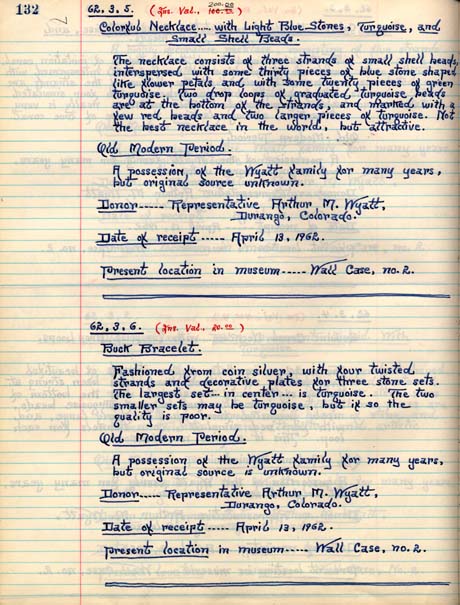 132
62.3.5. (Ins. Val., 100.00) 200.00
Colorful Necklace..... with Light Blue Stones, Turquoise, and
Small Shell Beads.
The necklace consists of three strands of small shell beads,
interspersed with some thirty pieces of blue stone shaped
like flower petals and with some twenty pieces of green
turquoise. Two drop loops of graduated turquoise beads
are at the bottom of the strands, and marked with a
few red beads and two larger pieces of turquoise. Not
the best necklace in the world, but attractive.
Old Modern Period.
A possession of the Wyatt family for many years,
but original source unknown.
Donor----- Representative Arthur M. Wyatt,
Durango, Colorado.
Date of receipt ----- April 13, 1962.
Present location in museum----- Wall Case, no. 2.
62.3.6. (Ins. Val., 20.00)
Buck Bracelet.
Fashioned from coin silver, with four twisted
strands and decorative plates for three stone sets.
The largest set--- in center --- is turquoise. The two
smaller sets may be turquoise, but if so the
quality is poor.
Old Modern Period.
A possession of the Wyatt family for many years,
but original source is unknown.
Donor----- Representative Arthur M. Wyatt,
Durango, Colorado.
Date of receipt ----- April 13, 1962.
present location in museum----- Wall Case, no. 2.